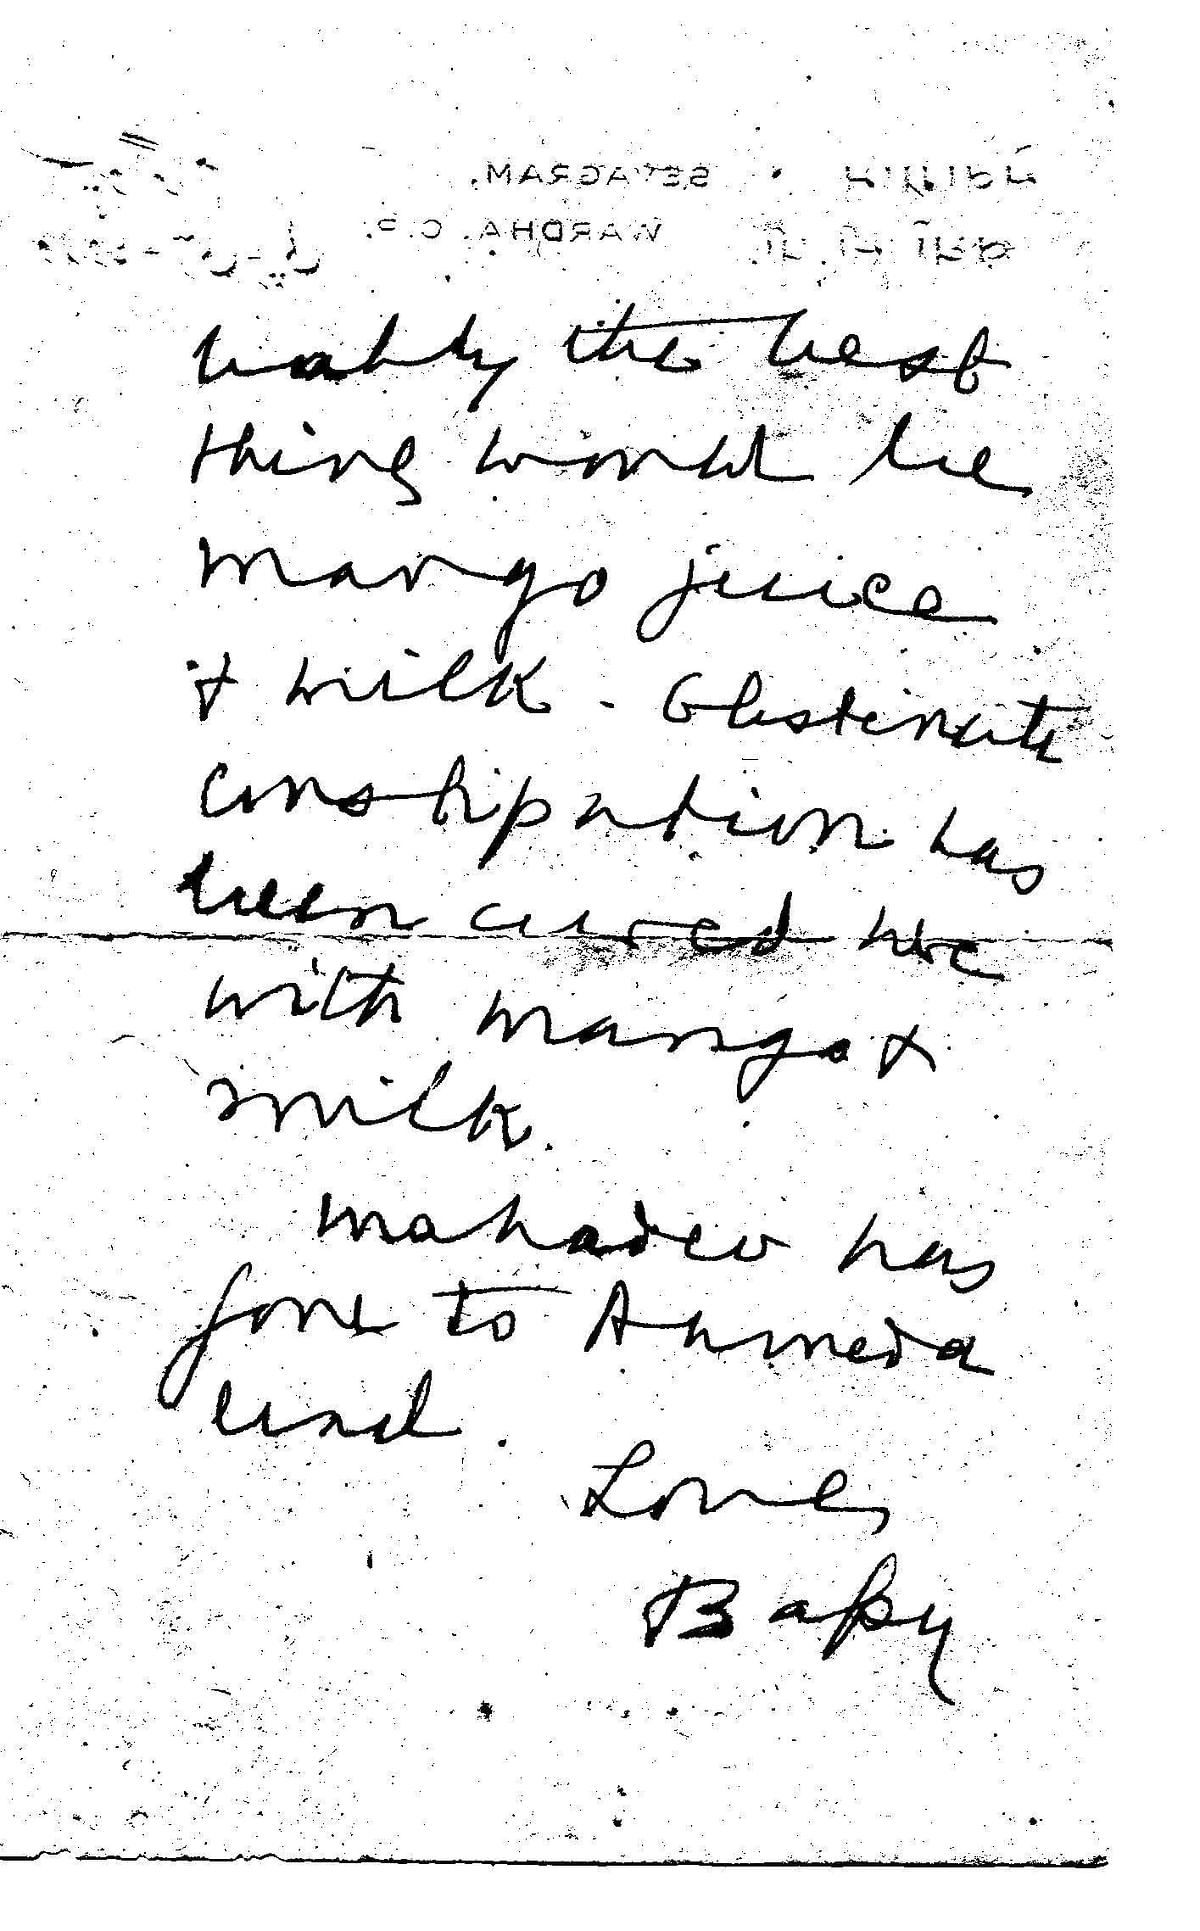 SEVAGRAM.
WARDHA, C.P.
सेवाग्राम
वर्धा सी. पी.
bably the best
thing would be
mango juice
& milk. Obstinate
constipation has
been cured here
with mango &
milk.
Mahadev has
gone to Ahmeda
bad.
Love,
Bapu